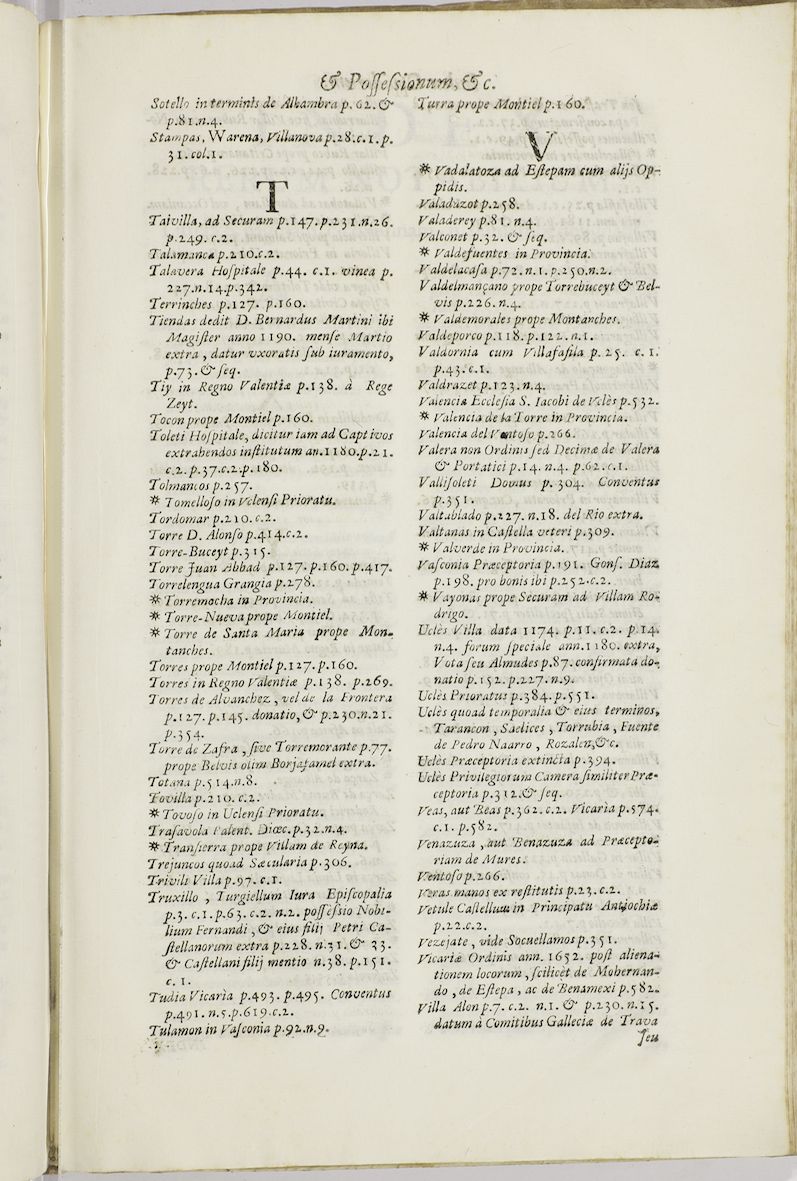 & Possessionum, &c.
Sotello in terminis de Alhambra p. 62. &
p.81.n.4.
Stampas, Warena, Villanova p.28.c.1.p.
31.col.1.
T
Taivilla, ad Securam p.147.p.231.n.26.
p.249. c.2.
Talamanca p.210.c.2.
Talavera Hospitale p.44. c.1. vinea p.
227.n.14.p.342.
Terrinches p.127. p.160.
Tiendas dedit D. Bernardus Martini ibi
Magister anno 1190. mense Martio
extra, datur vxoratis sub iuramento,
p.73.& seq.
Tiy in Regno Valentiæ p.138. à Rege
Zeyt.
Tocon prope Montiel p.160.
Toleti Hospitale, dicitur iam ad Captivos
extrahendos institutum an.1180.p.21.
c.2.p.37.c.2.p.180.
Tolmancos p.257.
* Tomelloso in Vclensi Prioratu.
Tordomar p.210.c.2.
Torre D. Alonso p.414.c.2.
Torre-Buceyt p.315.
Torre Juan Abbad p.127.p.160.p.417.
Torrelengua Grangia p.278.
* Torremocha in Provincia.
* Torre-Nueva prope Montiel.
* Torre de Santa Maria prope Mon-
tanches.
Torres prope Montiel p.127.p.160.
Torres in Regno Valentiæ p.138. p.269.
Torres de Alvanchez, vel de la Frontera
p.127.p.145. donatio, & p.230.n.21.
p.354.
Torre de Zafra, sive Torremorante p.77.
prope Belvis olim Borjafamel extra.
Totana p.514.n.8.
Tovilla p.210. c.2.
* Tovoso in Uclensi Prioratu.
Trasavola Palent. Diœc.p.32.n.4.
* Transierra prope Villam de Reyna.
Trejuncos quoad Sæcularia p.306.
Trivils Villa p.97.c.1.
Truxillo, Turgiellum Iura Episcopalia
p.3. c.1.p.63.c.2. n.2. possessio Nobi-
lium Fernandi, & eius filij Petri Ca-
stellanorum extra p.228. n.31.& 33.
& Castellani filij mentio n.38.p.151.
c. 1.
Tudia Vicaria p.493. p.495. Conventus
p.491.n.5.p.619.c.2.
Tulamon in Vasconia p.92.n.9.
Turra prope Montiel p.160.
V
* Vadalatoza ad Estepam cum alijs Op-
pidis.
Valaduzot p.258.
Valaderey p.81. n.4.
Valconet p.32. & seq.
* Valdefuentes in Provincia.
Valdelacasa p.72.n.1.p.250.n.2.
Valdelmançano prope Torrebuceyt & Bel-
vis p.226.n.4.
* Valdemorales prope Montanches.
Valdeporco p.118.p.122.n.1.
Valdornia cum Villafafila p.25. c. 1.
p.43.c.1.
Valdrazet p.123.n.4.
Valencia Ecclesia S. Iacobi de Vclès p.532.
* Valencia de la Torre in Provincia.
Valencia del Ventoso p.266.
Valera non Ordinis sed Decimæ de Valera
& Portatici p.14. n.4. p.62.c.1.
Vallisoleti Domus p. 304. Conventus
p.351.
Valtablado p.227. n.18. del Rio extra.
Valtanas in Castella veteri p.309.
* Valverde in Provincia.
Vasconia Præceptoria p.191. Gons. Diaz
p.198. pro bonis ibi p.252.c.2.
* Vayonas prope Securam ad Villam Ro-
drigo.
Uclès Villa data 1174. p.11. c.2. p.14.
n.4. forum speciale ann.1180. extra,
Vota seu Almudes p.87. confirmata do-
natio p.152. p.227.n.9.
Uclès Prioratus p.384.p.551.
Uclès quoad temporalia & eius terminos,
Tarancon, Saelices, Torrubia, Fuente
de Pedro Naarro, Rozalen,&c.
Uclès Præceptoria extincta p.394.
Uclès Privilegiorum Camera similiter Præ-
ceptoria p.312.& seq.
Veas, aut Beas p.362.c.2. Vicaria p.574.
c.1. p.582.
Venazuza, aut Benazuza ad Præcepto-
riam de Mures.
Ventoso p.266.
Veras manos ex restitutis p.23.c.2.
Vetule Castellum in Principatu Antiochiæ
p.22.c.2.
Vezejate, vide Socuellamos p.351.
Vicariæ Ordinis ann. 1652. post aliena-
tionem locorum, scilicèt de Mohernan-
do, de Estepa, ac de Benamexi p.582.
Villa Alon p.7. c.2. n.1. & p.230.n.15.
datum à Comitibus Galleciæ de Trava
seu